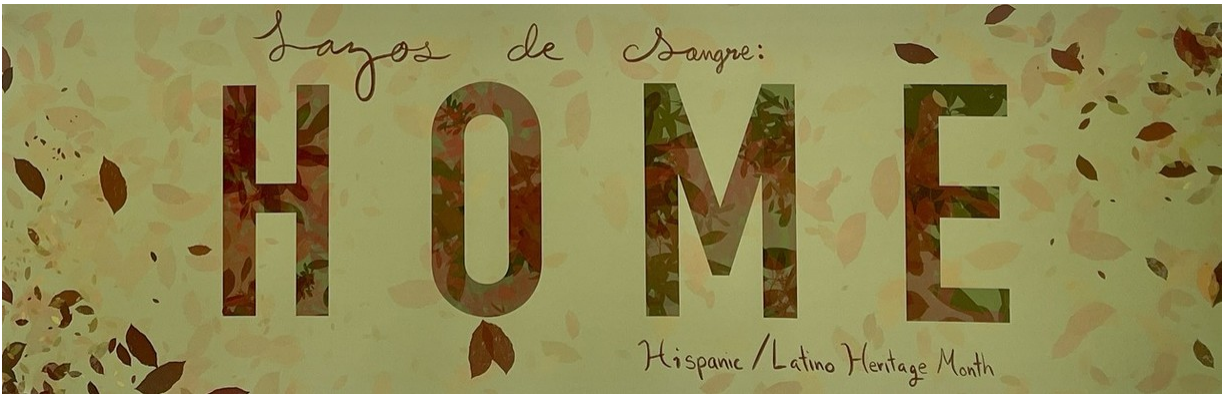 Lazos de Sangre:
HOME
Hispanic / Latino Heritage Month